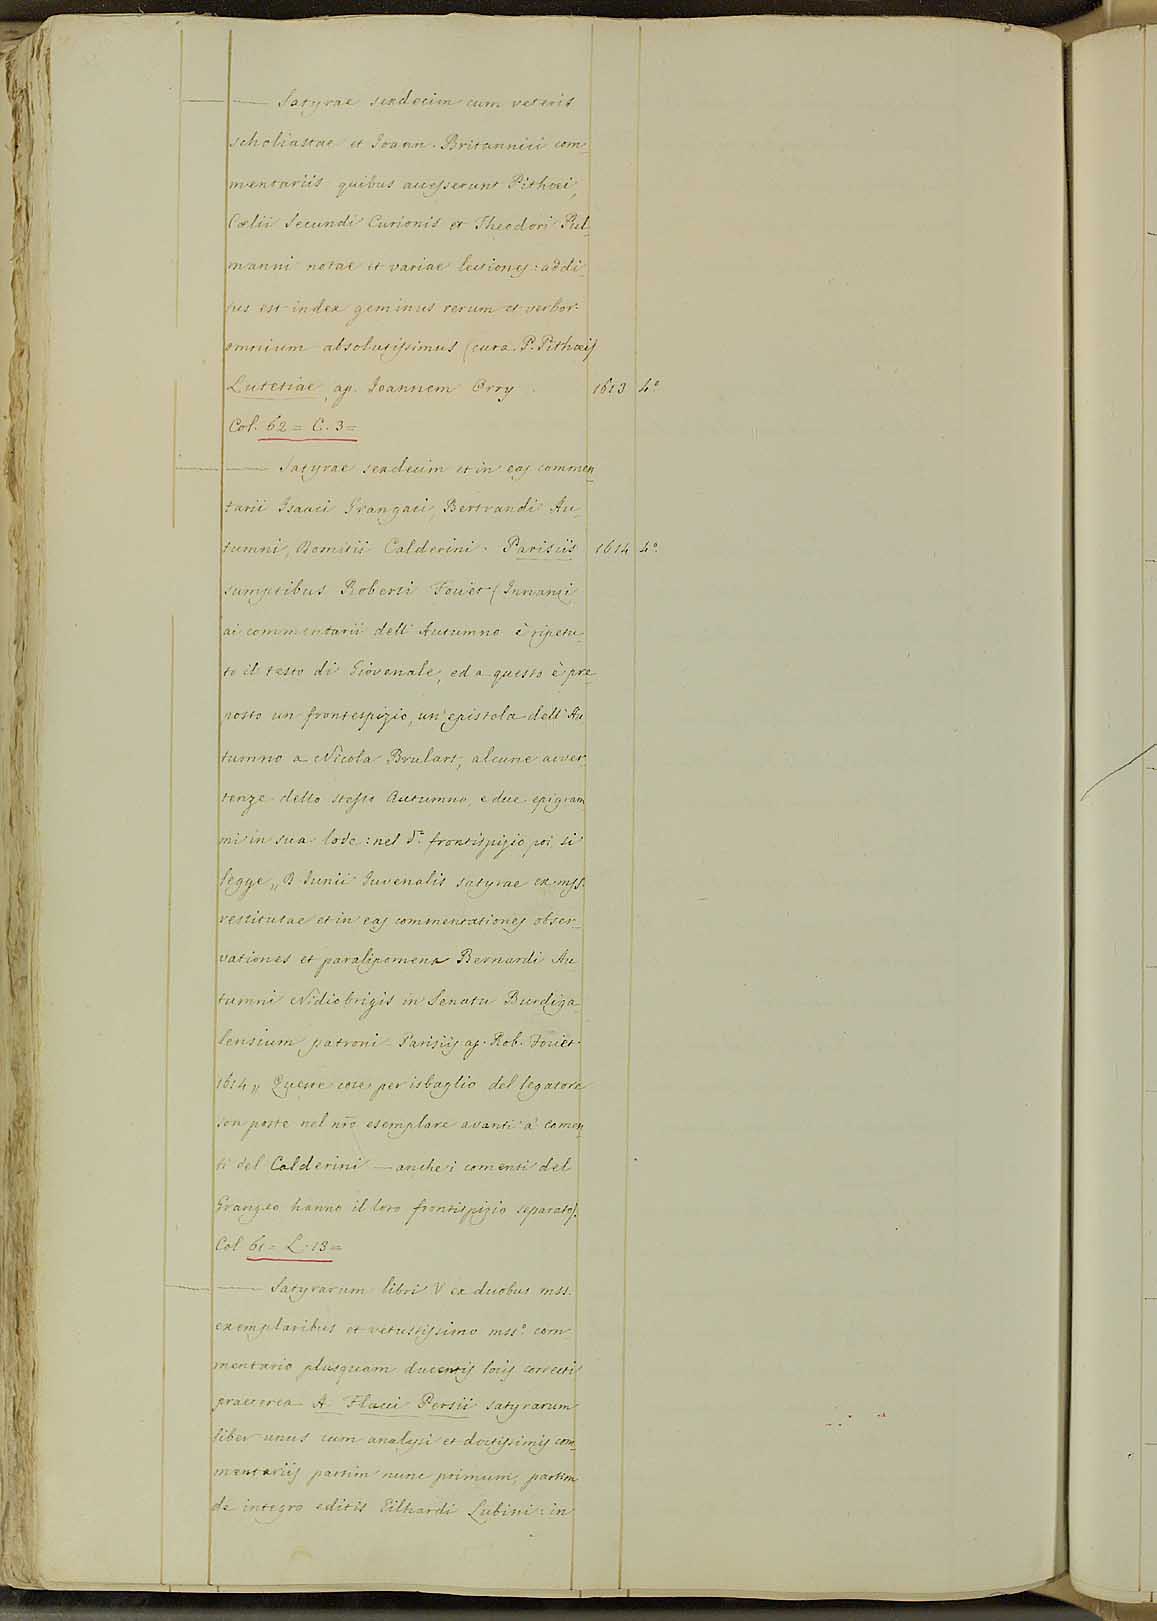 — Satyrae sexdecim cum veteris
scholiastae et Joann. Britannici com=
mentariis quibus accesserunt Pithoei,
Coelii Secundi Curionis et Theodori Pul=
manni notae et variae lectiones: addi=
tus est index geminus rerum et verbor.
omnium absolutissimus (cura P. Pithoei)
Lutetiae, ap. Joannem Orry 1613 4.º
Col. 62 = C. 3 =
— Satyrae sexdecim et in eas commen=
tarii Isaaci Grangaei, Bertrandi Au=
tumni, Domitii Calderini. Parisiis 1614 4.º
sumptibus Roberti Foüet (Innanzi
ai commentarii dell' Autumno è ripetu=
to il testo di Giovenale, ed a questo è pre=
posto un frontespizio, un' epistola dell' Au
tumno a Nicola Brulart, alcune avver
tenze dello stesso Autumno, e due epigram
mi in sua lode: nel dº. frontispizio poi si
legge „ D Junii Juvenalis satyrae ex mss.
restitutae et in eas commentationes obser=
vationes et paralipomena Bernardi Au
tumni Nidiobrigis in Senatu Burdiga=
lensium patroni Parisiis ap. Rob. Foüet.
1614 „ Queste cose per isbaglio del legatore
son poste nel nrõ esemplare avanti a' comen=
ti del Calderini — anche i comenti del
Grangeo hanno il loro frontispizio separato).
Col 61 = L. 13 =
— Satyrarum libri V ex duobus mss.
exemplaribus et vetustissimo mssº. com
mentario plusquam ducentis locis correcti
praeterea A Flacci Persii satyrarum
liber unus cum analysi et doctissimis com=
mentariis partim nunc primum, partim
de integro editis Eilhardi Lubini: in